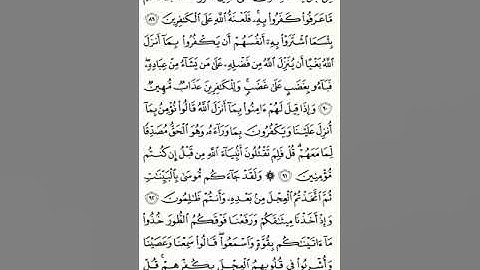 مَّا عَرَفُوا۟ كَفَرُوا۟ بِهِۦ ۚ فَلَعْنَةُ ٱللَّهِ عَلَى ٱلْكَـٰفِرِينَ ٨٩
بِئْسَمَا ٱشْتَرَوْا۟ بِهِۦٓ أَنفُسَهُمْ أَن يَكْفُرُوا۟ بِمَآ أَنزَلَ
ٱللَّهُ بَغْيًا أَن يُنَزِّلَ ٱللَّهُ مِن فَضْلِهِۦ عَلَىٰ مَن يَشَآءُ مِنْ عِبَادِهِۦ ۖ
فَبَآءُو بِغَضَبٍ عَلَىٰ غَضَبٍ ۚ وَلِلْكَـٰفِرِينَ عَذَابٌ مُّهِينٌ
٩٠ وَإِذَا قِيلَ لَهُمْ ءَامِنُوا۟ بِمَآ أَنزَلَ ٱللَّهُ قَالُوا۟ نُؤْمِنُ بِمَآ
أُنزِلَ عَلَيْنَا وَيَكْفُرُونَ بِمَا وَرَآءَهُۥ وَهُوَ ٱلْحَقُّ مُصَدِّقًا
لِّمَا مَعَهُمْ ۗ قُلْ فَلِمَ تَقْتُلُونَ أَنۢبِيَآءَ ٱللَّهِ مِن قَبْلُ إِن كُنتُم
مُّؤْمِنِينَ ٩١ ۞ وَلَقَدْ جَآءَكُم مُّوسَىٰ بِٱلْبَيِّنَـٰتِ
ثُمَّ ٱتَّخَذْتُمُ ٱلْعِجْلَ مِنۢ بَعْدِهِۦ وَأَنتُمْ ظَـٰلِمُونَ ٩٢
وَإِذْ أَخَذْنَا مِيثَـٰقَكُمْ وَرَفَعْنَا فَوْقَكُمُ ٱلطُّورَ خُذُوا۟
مَآ ءَاتَيْنَـٰكُم بِقُوَّةٍ وَٱسْمَعُوا۟ ۖ قَالُوا۟ سَمِعْنَا وَعَصَيْنَا
وَأُشْرِبُوا۟ فِى قُلُوبِهِمُ ٱلْعِجْلَ بِكُفْرِهِمْ ۚ قُلْ